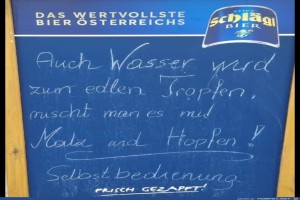 DAS WERTVOLLSTE
BIER ÖSTERREICHS
schlägl
BIER
Auch Wasser wird
zum edlen Tropfen,
mischt man es mit
Malz und Hopfen!
Selbstbedienung
FRISCH GEZAPFT!